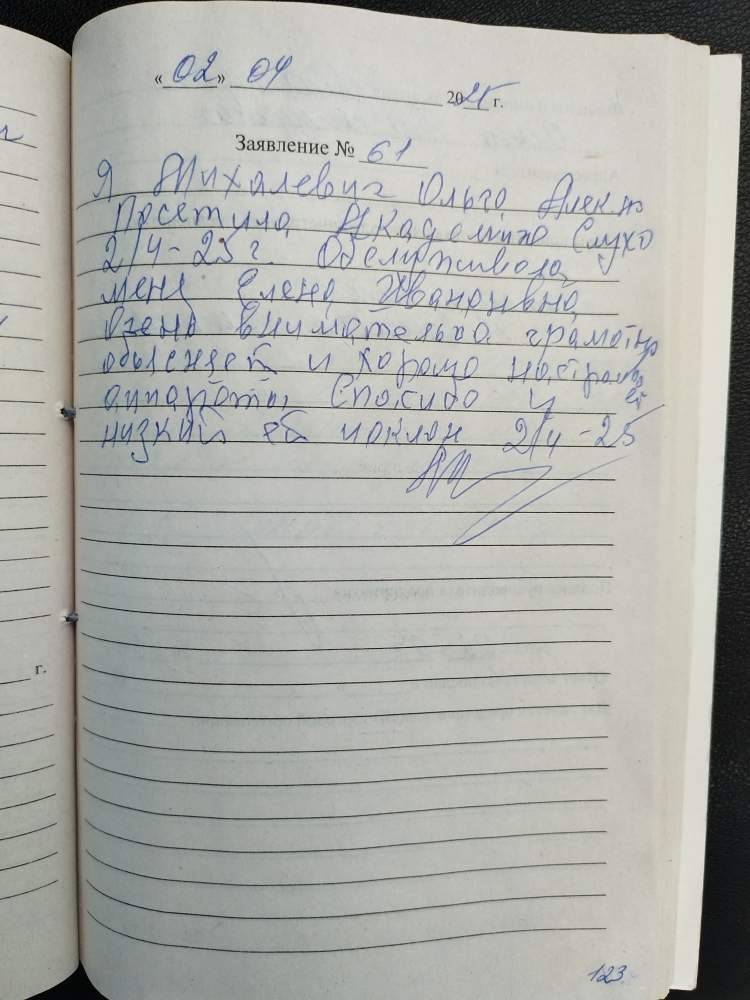 « 02 » 04 2025 г.
Заявление № 61
Я Михалевич Ольга Алек
Посетила Академию Слуха
2/4-25 г. Обслуживала
меня Елена Ивановна
Очень внимательно грамотно
объясняет и хорошо настраивает
аппараты Спасибо и
низкий ей поклон 2/4-25
г.
123